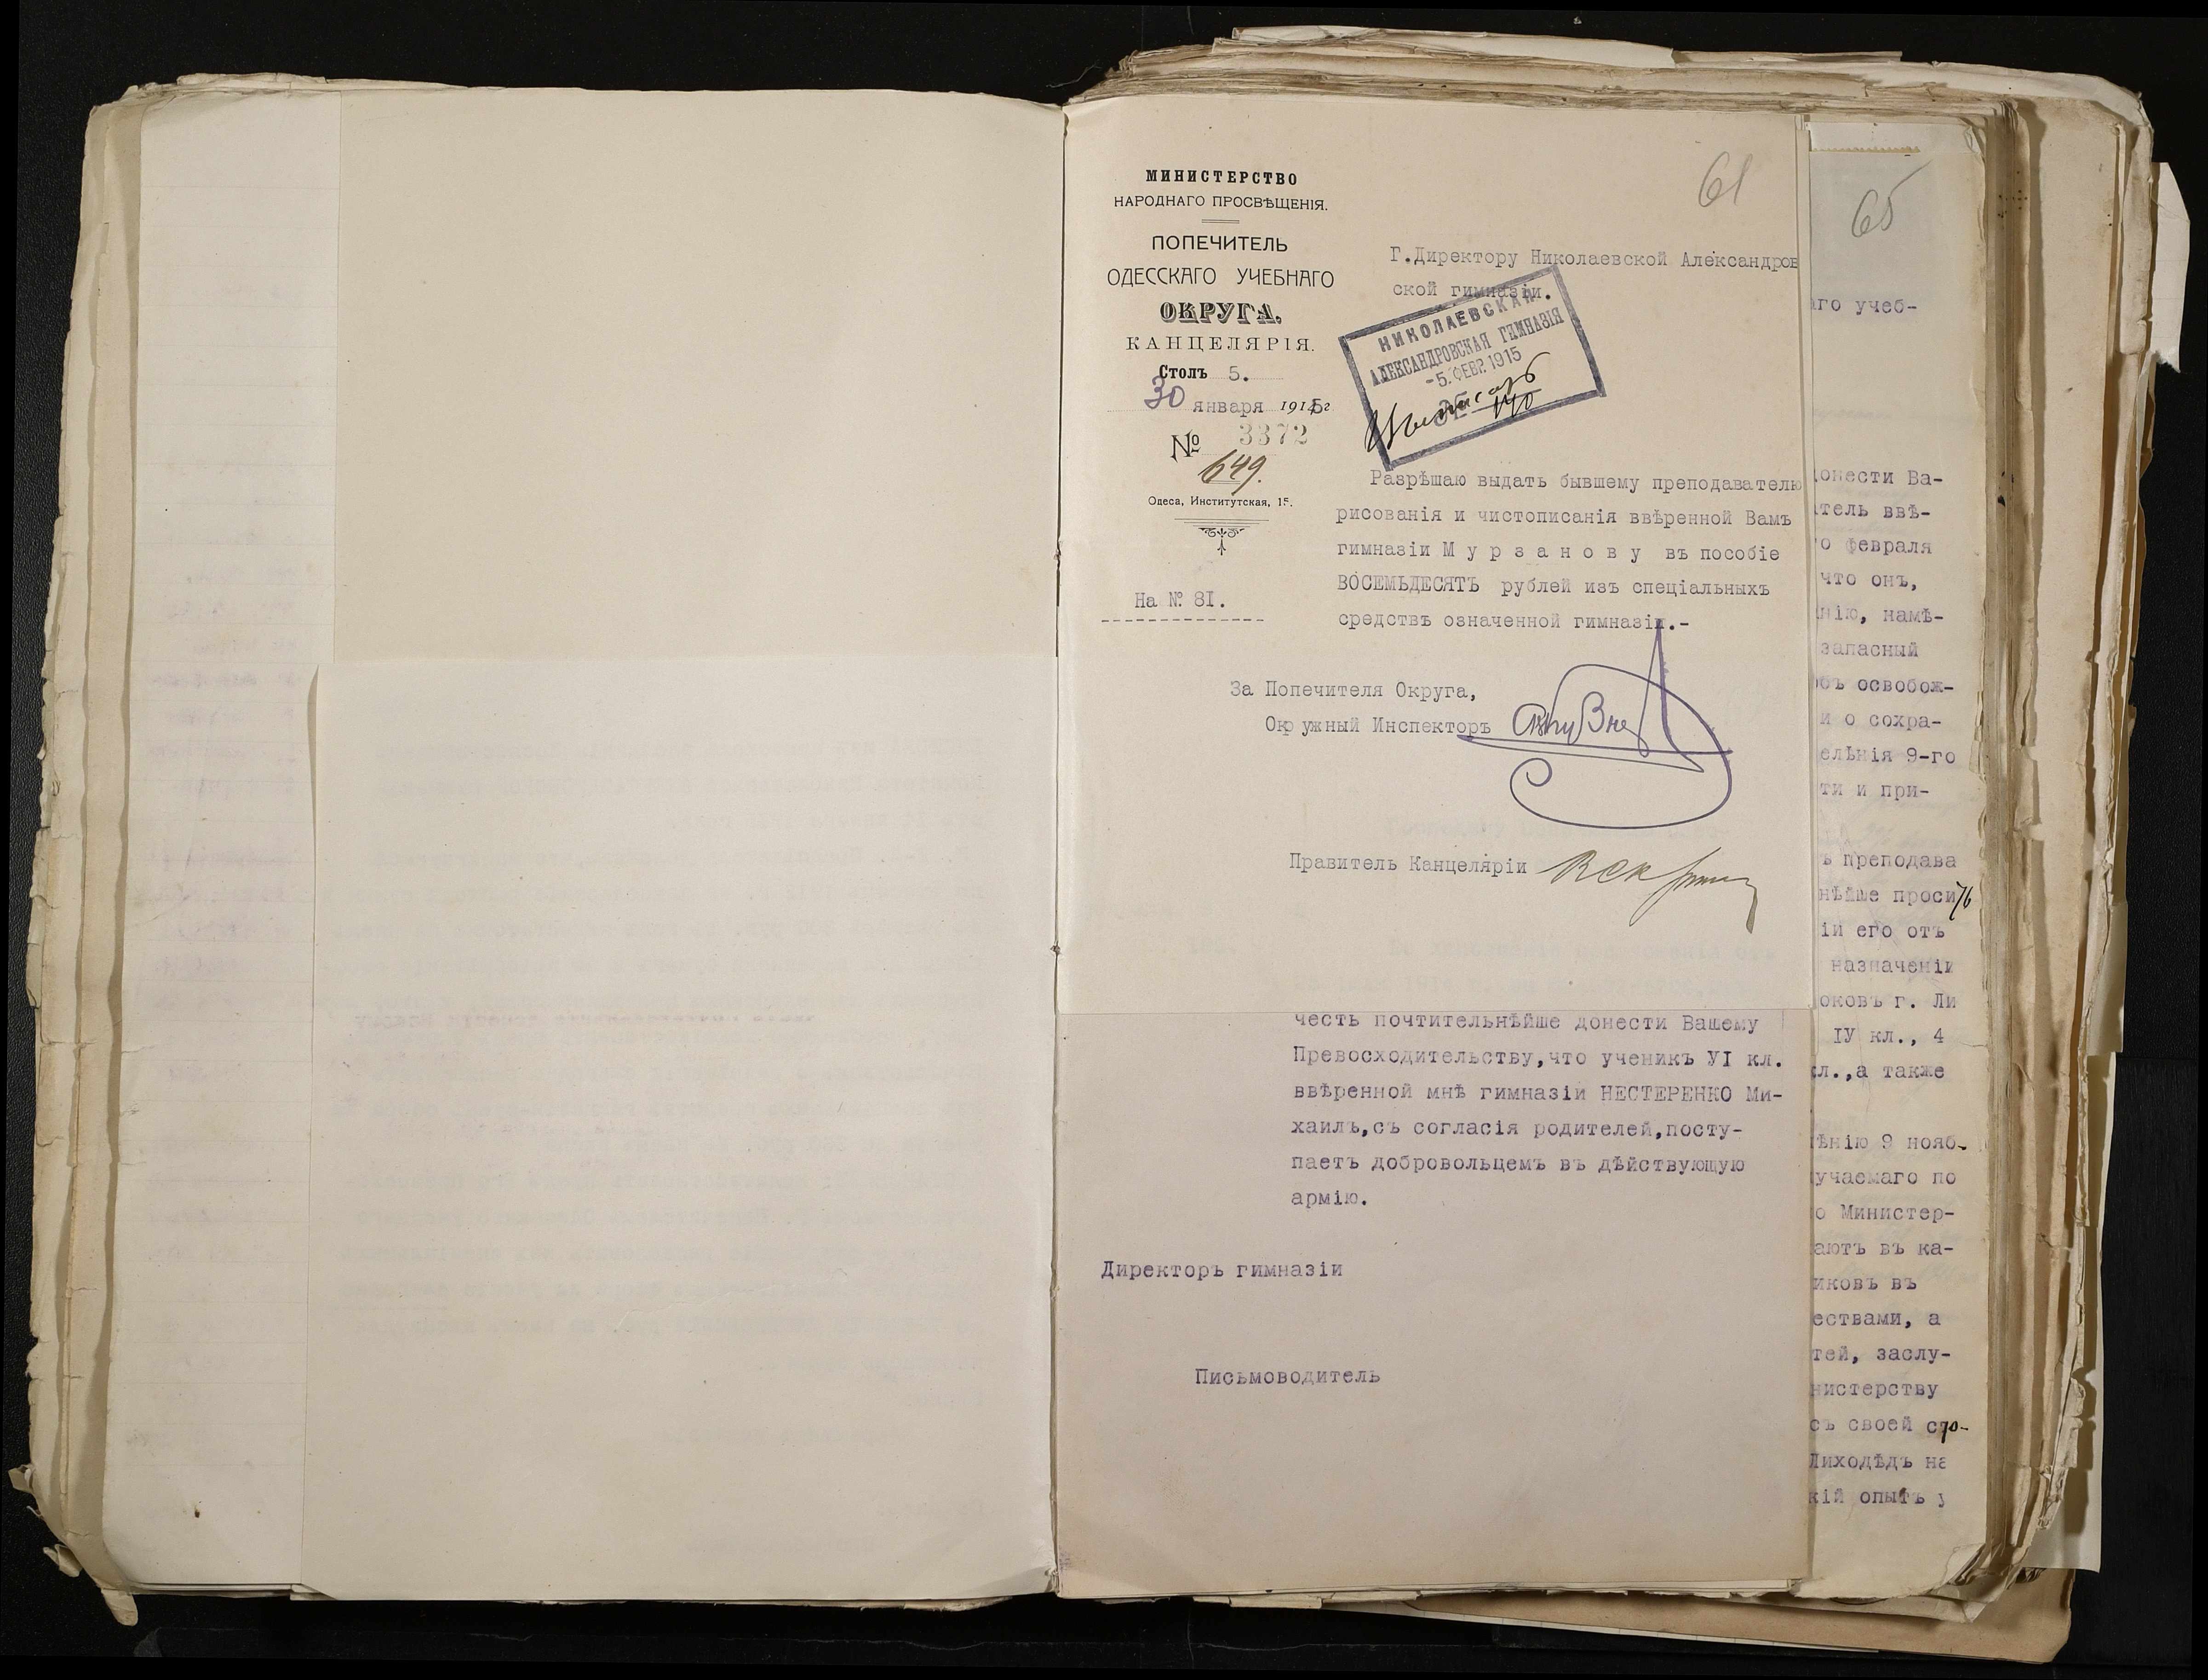 61
МИНИСТЕРСТВО
НАРОДНАГО ПРОСВѢЩЕНІЯ.
ПОПЕЧИТЕЛЬ
ОДЕССКАГО УЧЕБНАГО
ОКРУГА.
КАНЦЕЛЯРІЯ.
Столъ 5.
30 января 1915 г
№ 3372
649.
Одеса, Институтская, 15.
На № 81.
Г.Директору Николаевской Александров
ской гимназіи.
НИКОЛАЕВСКАЯ
АЛЕКСАНДРОВСКАЯ ГИМНАЗІЯ
-5.ФЕВР.1915
140
Разрѣшаю выдать бывшему преподавателю
рисованія и чистописанія ввѣренной Вамъ
гимназіи М у р з а н о в у въ пособіе
ВОСЕМЬДЕСЯТЪ рублей изъ спеціальныхъ
средствъ означенной гимназіи.-
За Попечителя Округа,
Окружный Инспекторъ
Правитель Канцеляріи
честь почтительнѣйше донести Вашему
Превосходительству,что ученикъ УІ кл.
ввѣренной мнѣ гимназіи НЕСТЕРЕНКО Ми-
хаилъ,съ согласія родителей,посту-
паетъ добровольцемъ въ дѣйствующую
армію.
Директоръ гимназіи
Письмоводитель
65
аго учеб-
донести Ва-
атель ввѣ-
го февраля
что онъ,
нію, намѣ-
запасный
объ освобож-
и о сохра-
елѣнія 9-го
ти и при-
ъ преподава
нѣйше проситъ
іи его отъ
назначеніи
оковъ г. Ли
ІУ кл., 4
кл.,а также
ѣнію 9 нояб-
учаемаго по
о Министер-
аютъ въ ка-
иковъ въ
ествами, а
тей, заслу-
нистерству
съ своей сто-
Лиходѣдъ на
кій опытъ у